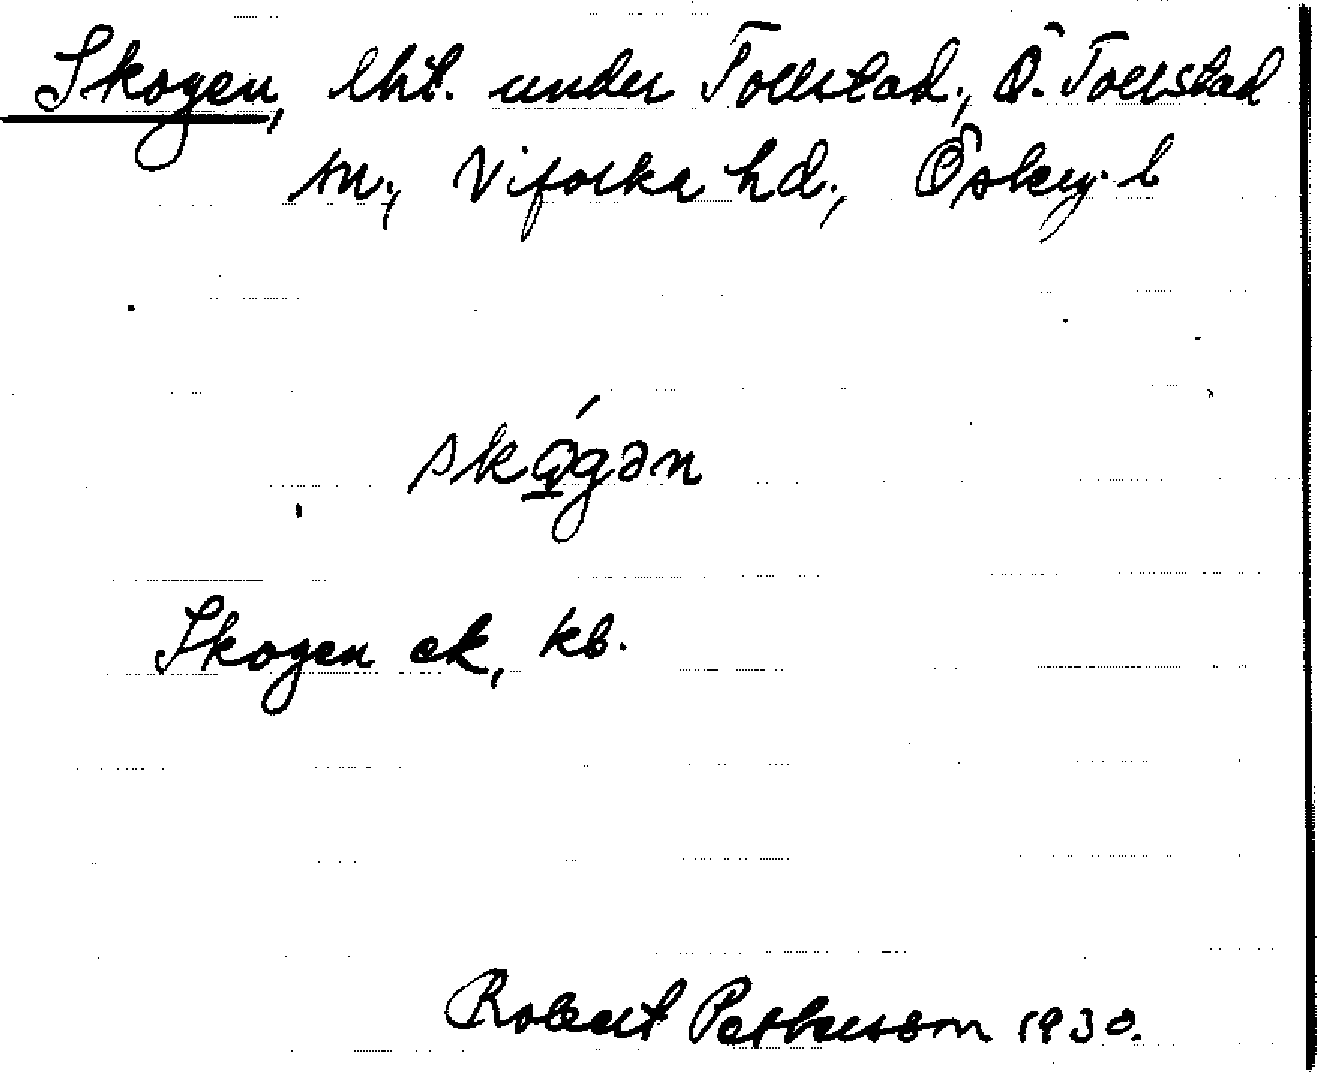 Skogen, lht. under Tollstad, Ö. Tollstad
sn., Vifolka hd., Österg. l
skǫ́gən
Skogen ek, kb.
Robert Pettersson 1930.